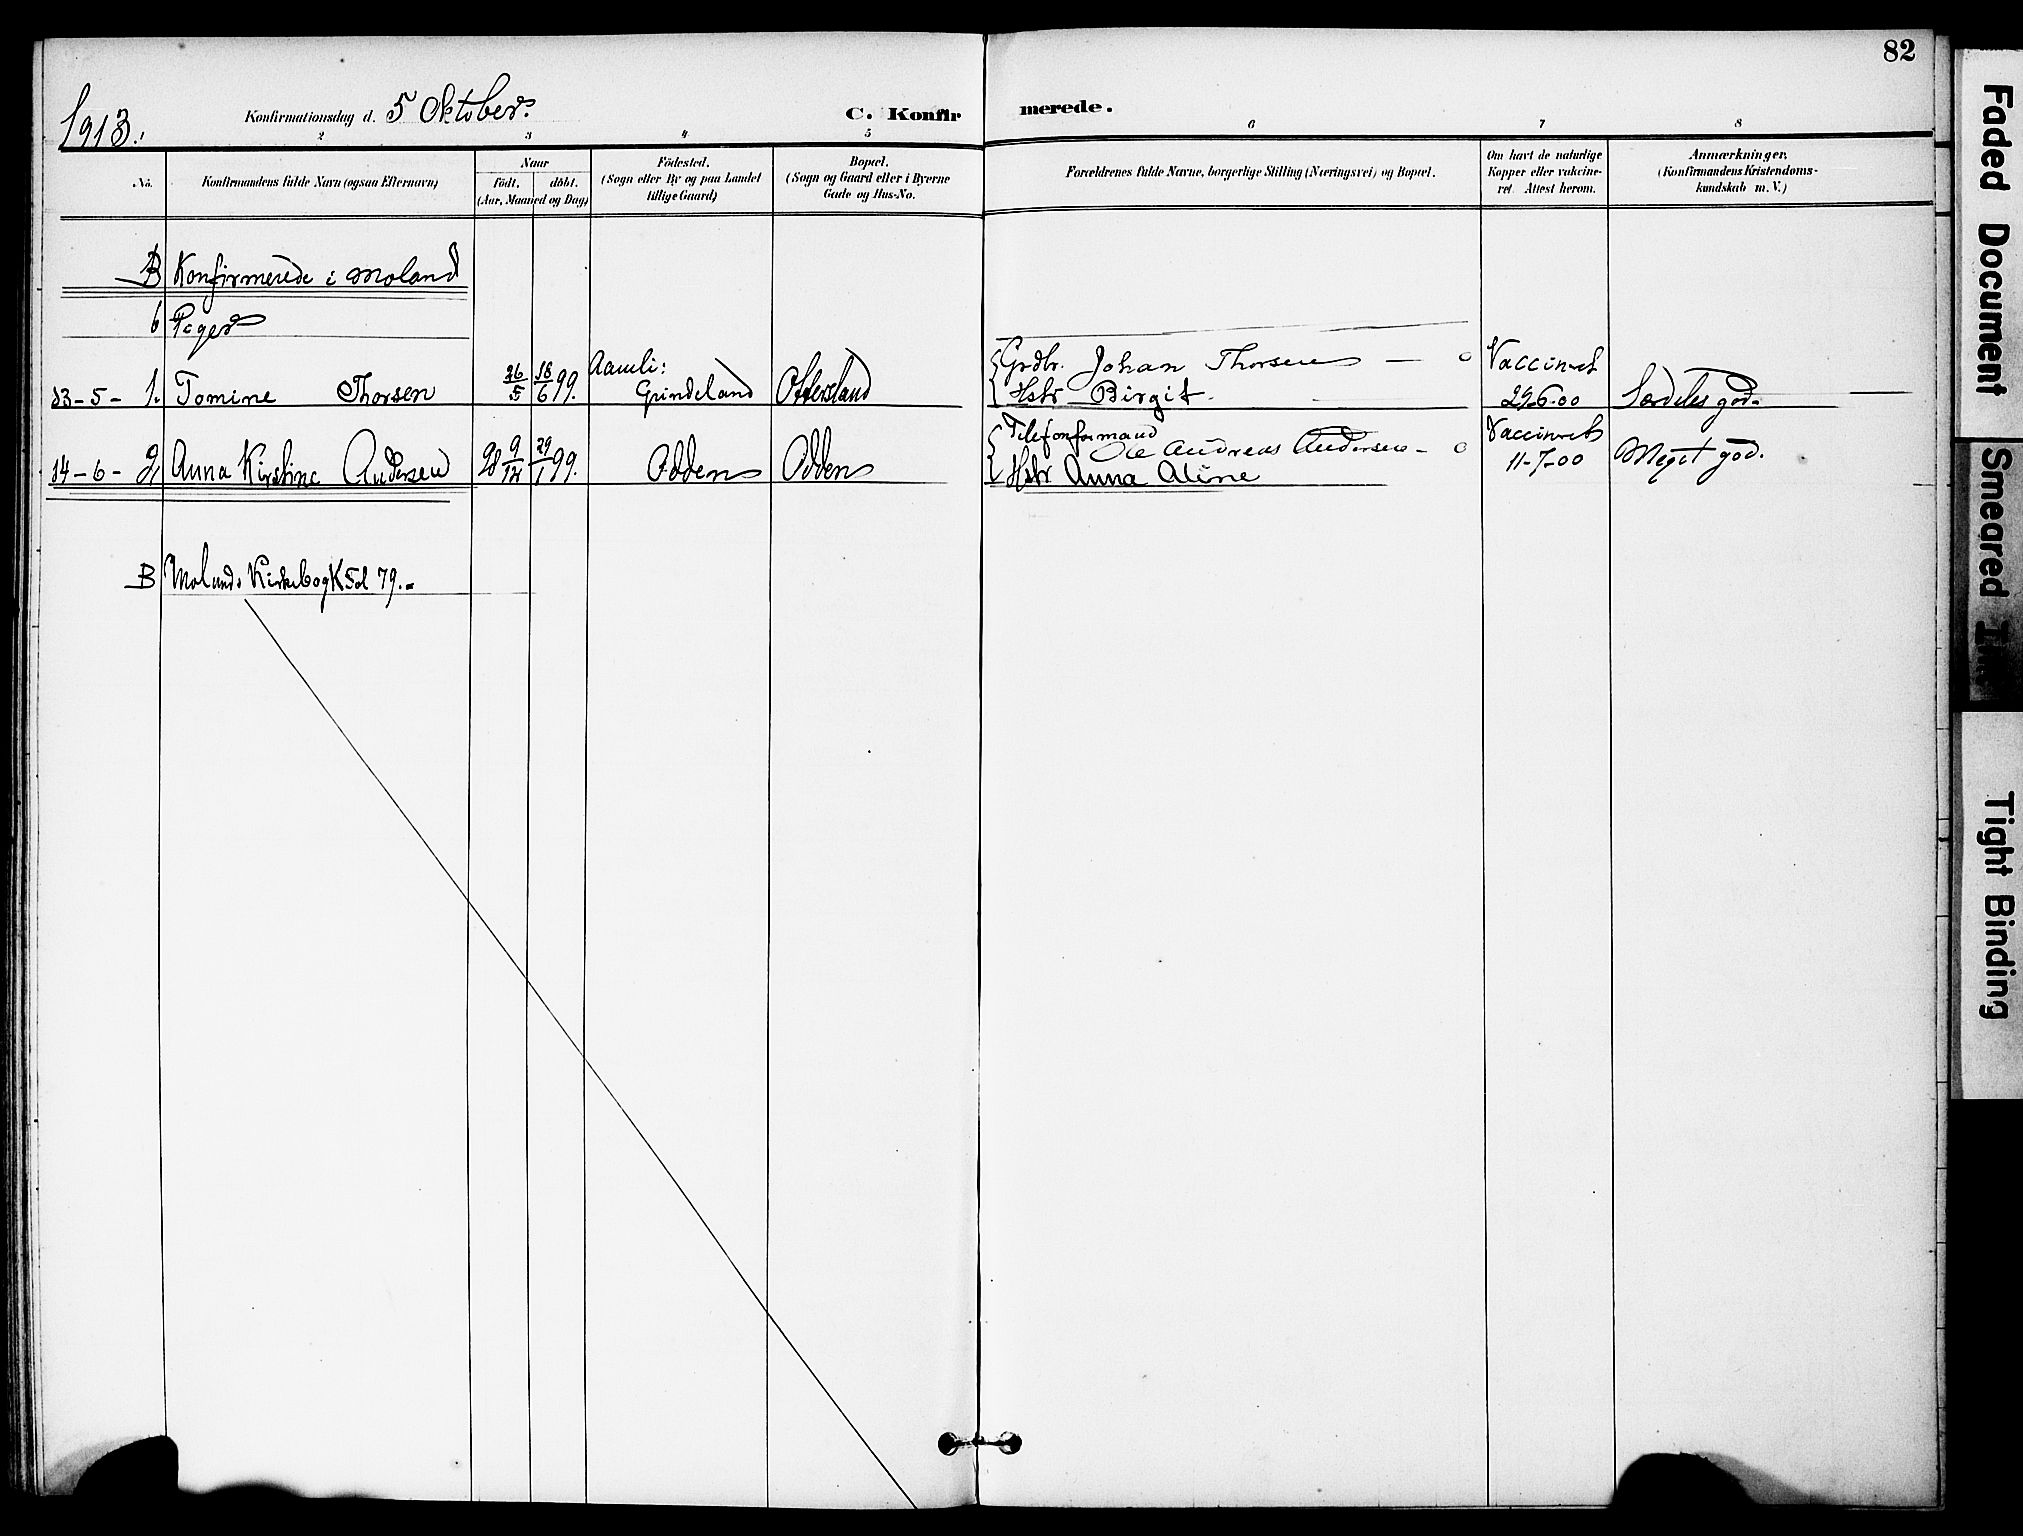 82
1913.
Konfirmationsdag d. 5 Oktober.
C. Konfirmerede.
2 3 4 5 6 7 8
No.
Konfirmandens fulde Navn (ogsaa Efternavn)
Naar
födt. döbt.
(Aar, Maaned og Dag)
Födested.
(Sogn eller By og paa Landet
tillige Gaard)
Bopæl.
(Sogn og Gaard eller i Byerne
Gade og Hus-No.
Forældrenes fulde Navne, borgerlige Stilling (Næringsvei) og Bopæl.
Om havt de naturlige
Kopper eller vakcine-
ret. Attest herom.
Anmærkninger.
(Konfirmandens Kristendoms-
kundskab m. V.)
B Konfirmerede i Moland
b Piger
13-5- 1. Tomine Thorsen 26/5 18/6 99. Aamli: Grindeland Ottersland
Grdbr. Johan Thorsen
Hstr Birgit.
Vaccineret
29-6-00
Særdeles god.
14-6- 2, Anna Kirstine Andersen 98 9/12 29/1 99. Odden Odden
Telefonformand
Ole Andreas Andersen
Hstr Anna Aline
Vaccineret
11-7-00
Meget god.
B Molands Kirkebog K Fol 79.
Faded Document
Smeared Ink
Tight Binding